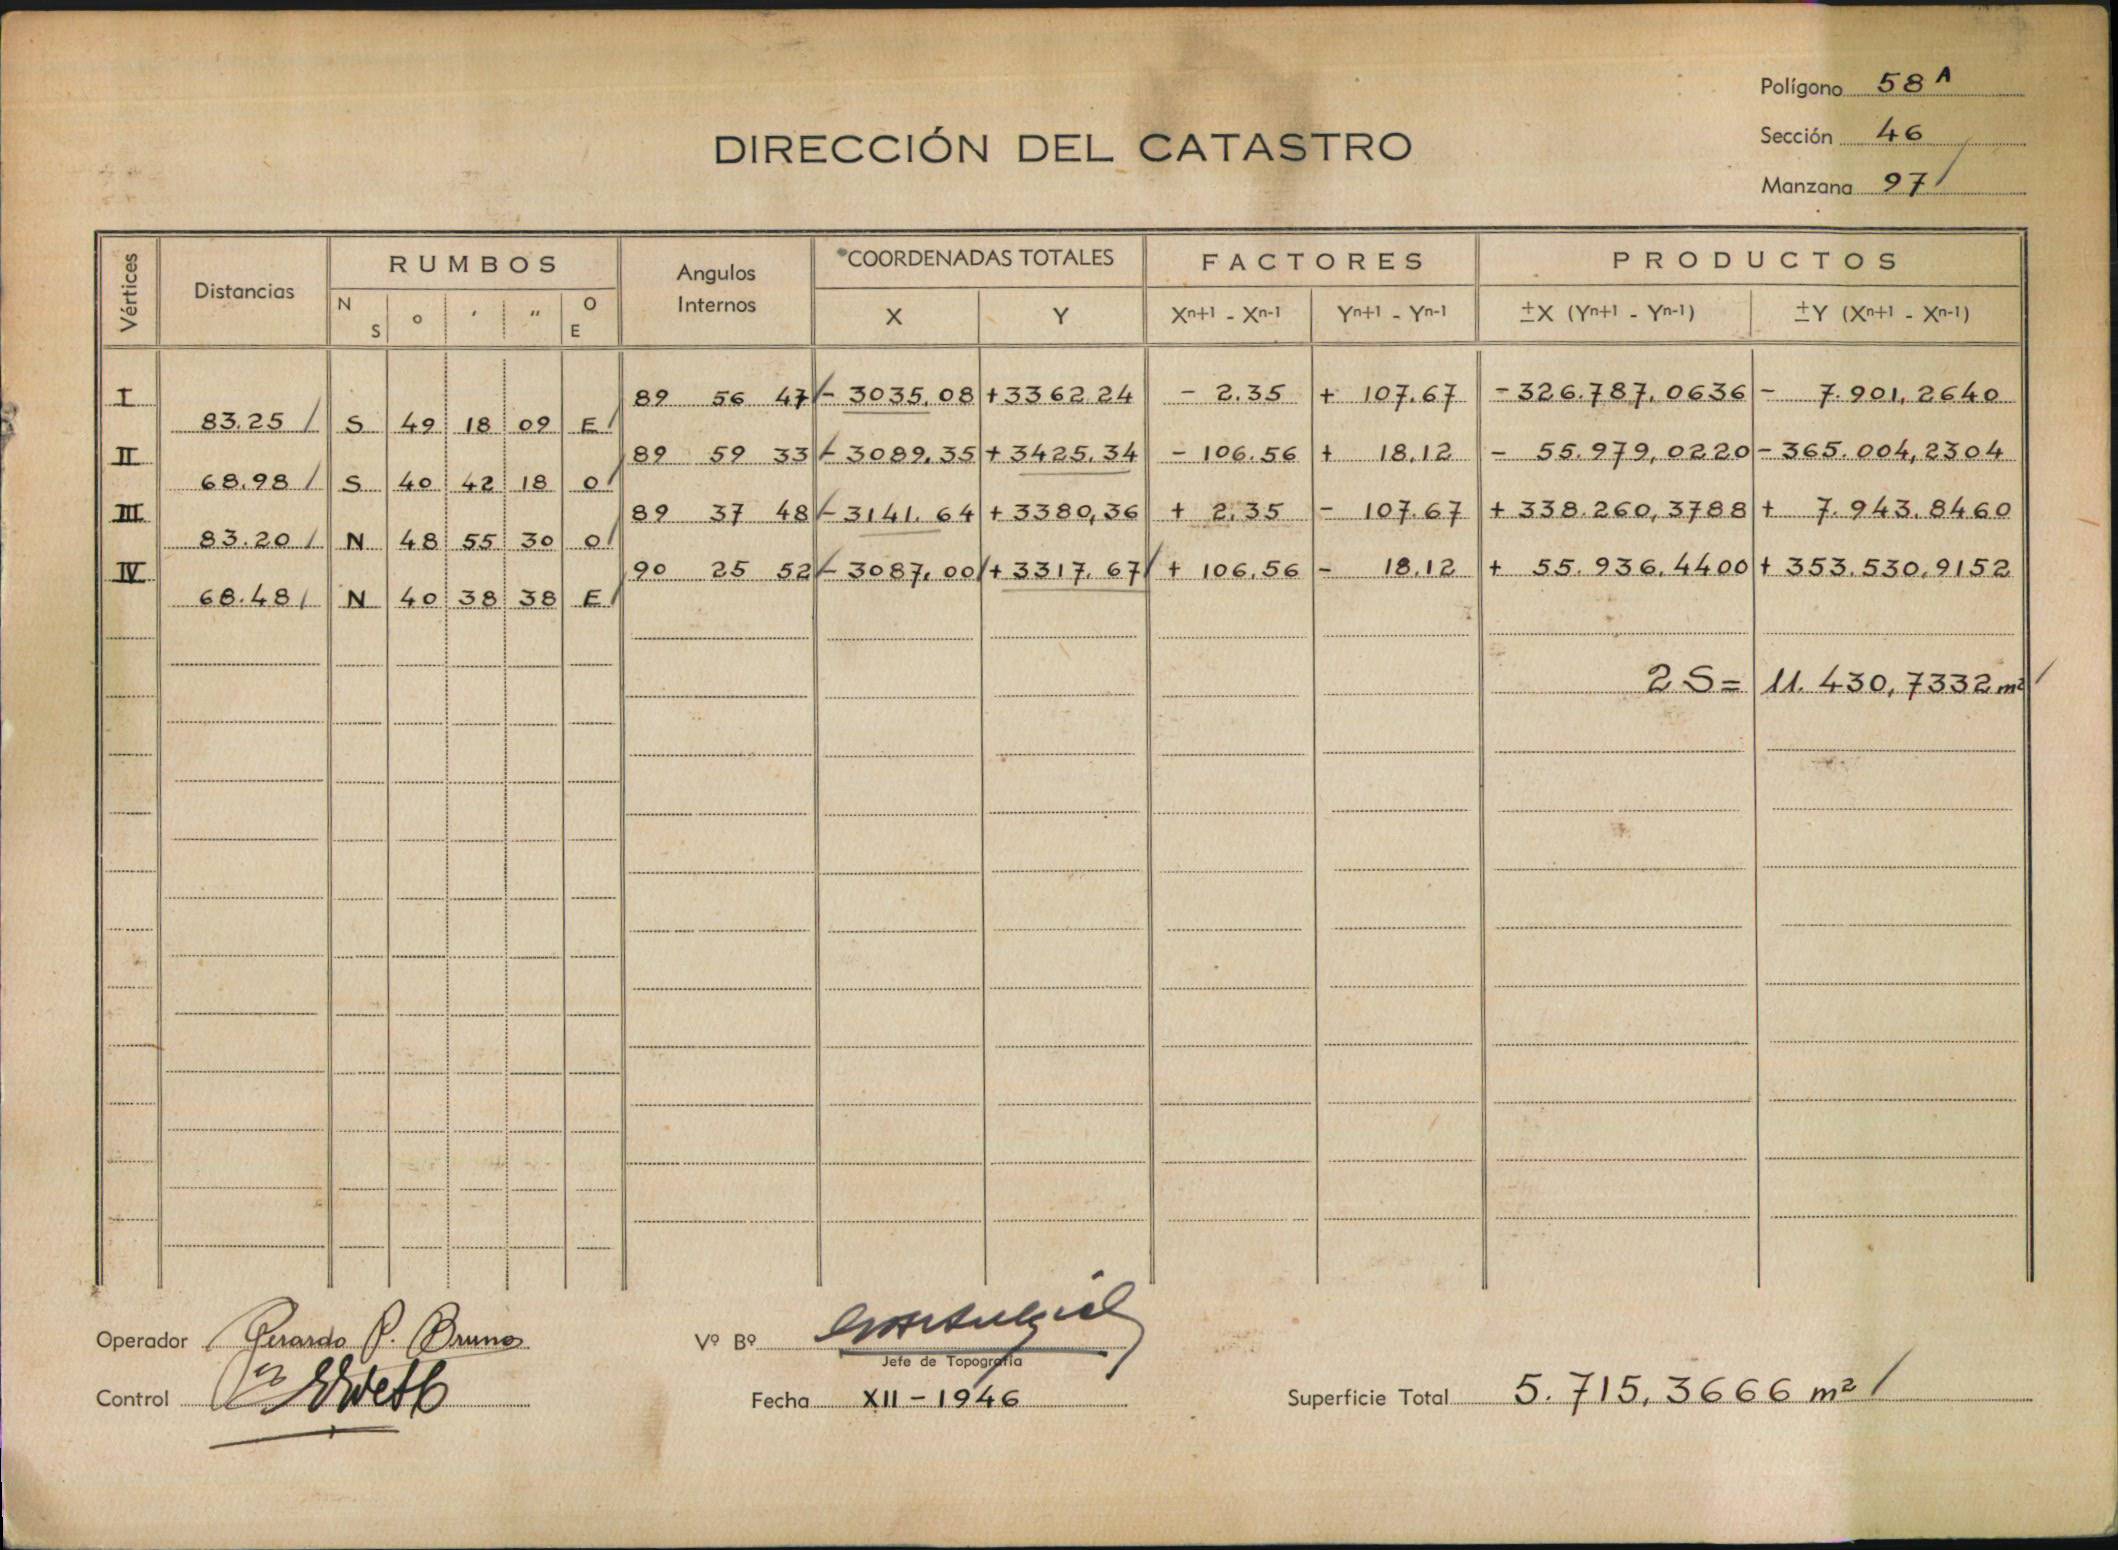 Polígono 58 A
Sección 46
DIRECCIÓN DEL CATASTRO
Manzana 97
Vértices Distancias RUMBOS Angulos Internos COORDENADAS TOTALES FACTORES PRODUCTOS
N S ° ′ ″ O E X Y Xⁿ⁺¹ - Xⁿ⁻¹ Yⁿ⁺¹ - Yⁿ⁻¹ ±X (Yⁿ⁺¹ - Yⁿ⁻¹) ±Y (Xⁿ⁺¹ - Xⁿ⁻¹)
I 89 56 47 - 3035.08 +3362.24 - 2.35 + 107.67 -326.787,0636 - 7.901,2640
83.25 S 49 18 09 E
II 89 59 33 - 3089,35 + 3425.34 - 106.56 + 18.12 - 55.979,0220 -365.004,2304
68.98 S 40 42 18 O
III 89 37 48 - 3141.64 + 3380,36 + 2.35 - 107.67 + 338.260,3788 + 7.943.8460
83.20 N 48 55 30 O
IV 90 25 52 - 3087.00 + 3317.67 + 106.56 - 18.12 + 55.936.4400 + 353.530,9152
68.48 N 40 38 38 E
2 S = 11.430,7332 m²
Operador Gerardo P. Bruno
Vº Bº
Jefe de Topografía
Control
Fecha XII - 1946
Superficie Total 5.715,3666 m²